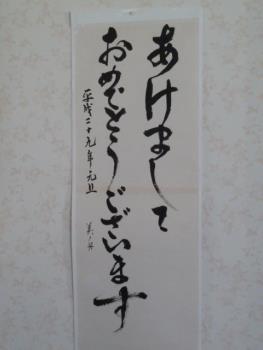 あけまして
おめでとうございます
平成二十九年元旦